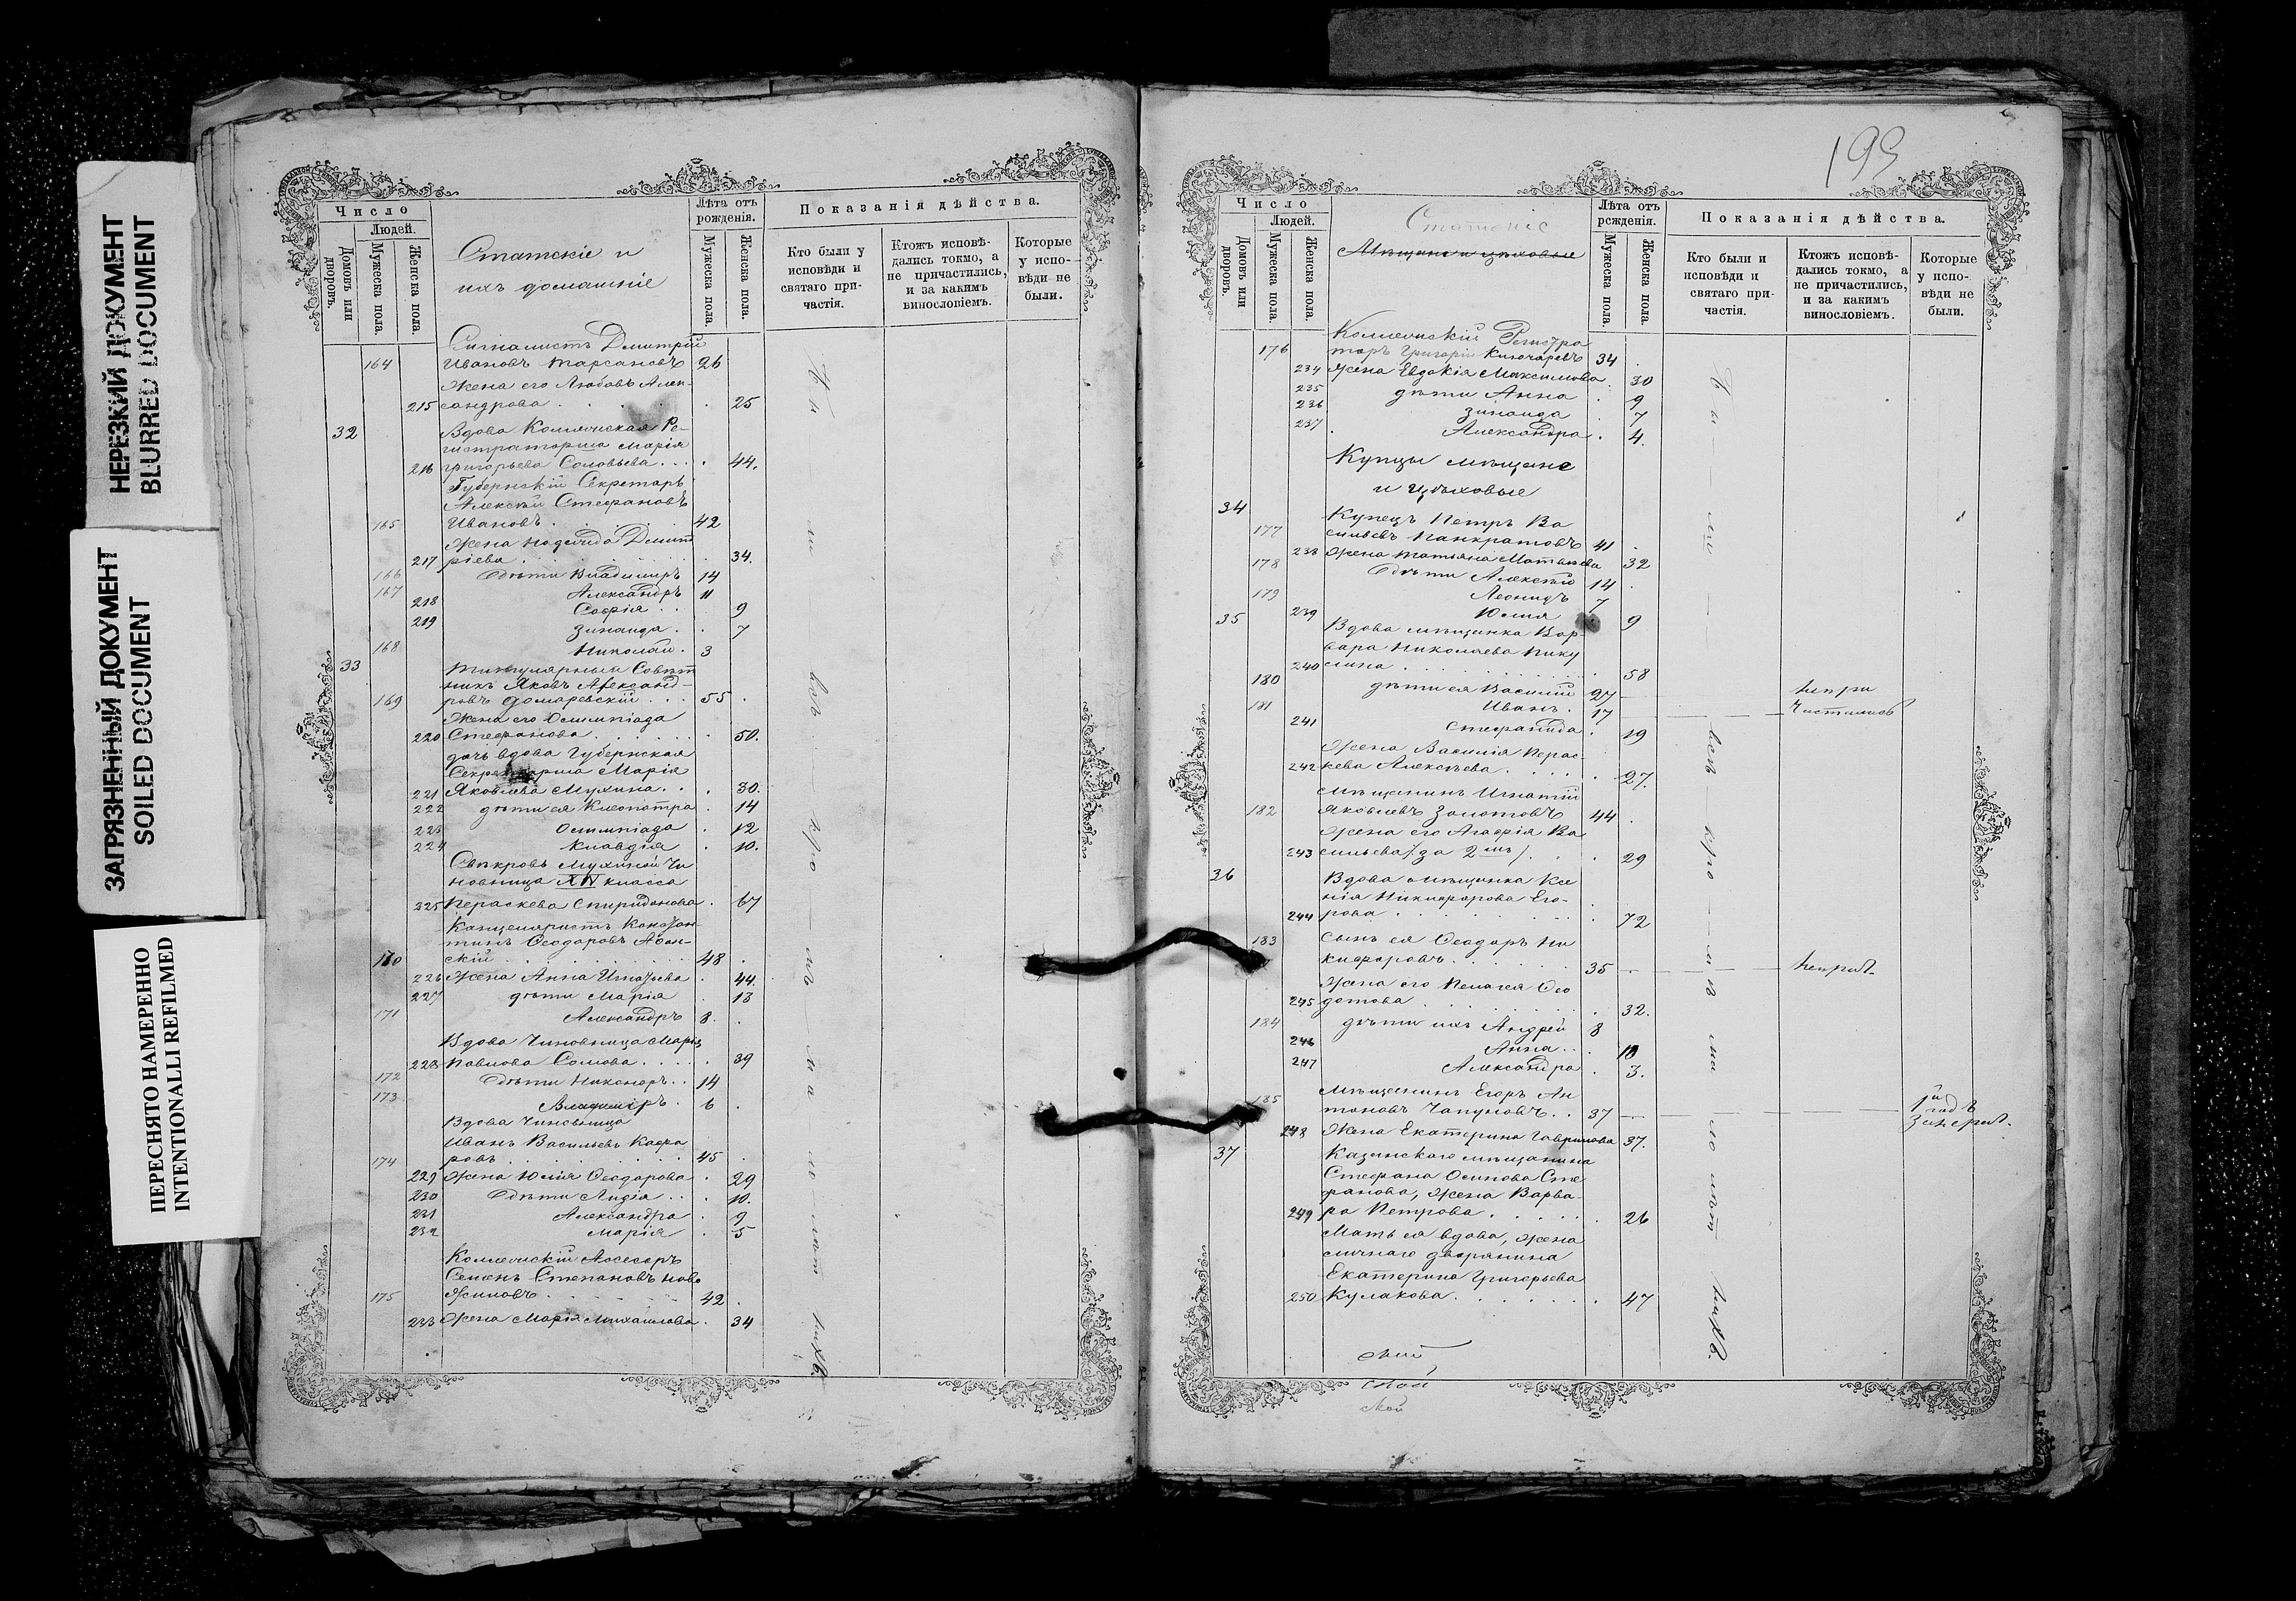 НЕРЕЗКИЙ ДОКУМЕНТ
BLURRED DOCUMENT
ЗАГРЯЗНЕННЫЙ ДОКУМЕНТ
SOILED DOCUMENT
ПЕРЕСНЯТО НАМЕРЕННО
INTENTIONALLI REFILMED
Число
Людей.
Домовъ или дворовъ.
Мужеска пола.
Женска пола.
Статскіе и
ихъ домашніе
Лѣта отъ рожденія.
Мужеска пола.
Женска пола.
Показанія дѣйства.
Кто были у исповѣди и святаго причастія.
Ктожъ исповѣдались токмо, а не причастились, и за какимъ винословіемъ.
Которые у исповѣди не были.
Сигналистъ Дмитрій
164 Ивановъ 26
Жена его Любовь Алек-
215 сандрова 25
32 Вдова Коллежская Ре-
гистраторша Марія
216 Григорьева Соловьева 44.
Губернскій Секретарь
Алексѣй Стефановъ
165 Ивановъ 42
Жена Надежда Дмит
217 ріева 34.
166 Дѣти Владимиръ 14
167 Александръ 11
218 Софія 9
219 Зинаида 7
168 Николай 3
33 Титулярный Совѣт
никъ Яковъ Александ-
169 ровъ Домаревскій 55
Жена его Олимпіада
220 Стефанова 50.
дочь вдова Губернская
Секретарша Марія
221 Яковлева Мухина 30.
222 дѣти ея Клеопатра 14
223 Олимпіада 12
224 Клавдія 10.
Свѣкровь Мухиной Чи
новница XIV класса
225 Параскева Спиридонова 67
Канцеляристъ Констан-
тинъ Ѳеодоровъ
170 скій 48
226 Жена Анна Игнатьева 44.
227 дѣти Марія 13
171 Александръ 8
Вдова Чиновница Марія
228 Павлова Сомова 39
172 Дѣти Никаноръ 14
173 Владиміръ 6
Вдова Чиновница
Иванъ Васильевъ Кафа
174 ровъ 45
229 Жена Юлія Ѳеодорова 29
230 Дѣти Лидія 10.
231 Александра 9
232 Марія 5
Коллежскій Ассесоръ
Семенъ Степановъ Ново
175 жиловъ 42
233 Жена Марія Михайлова 34
199
Число
Людей.
Домовъ или дворовъ.
Мужеска пола.
Женска пола.
Статскіе
Мѣщане и цѣховые
Лѣта отъ рожденія.
Мужеска пола.
Женска пола.
Показанія дѣйства.
Кто были и исповѣди и святаго причастія.
Ктожъ исповѣдались токмо, а не причастились, и за какимъ винословіемъ.
Которые у исповѣди не были.
Коллежскій Регистра
176 торъ Григорій Ключаревъ 34
234 Жена Евдокія Максимова 30
235 дѣти Анна 9
236 Зинаида 7
237 Александра 4.
Купцы мѣщане
и цѣховые
34 Купецъ Петръ Ва
177 сильевъ Панкратовъ 41
238 Жена Татьяна Матвѣева 32
178 Дѣти Алексѣй 14
179 Леонидъ 7
239 Юлія 9
35 Вдова мѣщанка Вар-
вара Николаева Пику
240 лина 58
180 дѣти ея Василій 27
181 Иванъ 17
241 Стефанида 19
Жена Василія Парас-
242 кева Алексѣева 27.
Мѣщанинъ Игнатій
182 Яковлевъ Золотовъ 44
Жена его Агафія Ва
243 сильева (за 2мъ) 29
36 Вдова мѣщанка Ксе
нія Никифорова Его-
244 рова 72
183 Сынъ ея Ѳеодоръ Ни
кифоровъ 35
Жена его Пелагея Ѳео
245 дотова 32.
184 дѣти ихъ Андрей 8
246 Анна 10
247 Александра 3.
Мѣщанинъ Егоръ Ан
185 тоновъ Чапуновъ 37
248 Жена Екатерина Гаврилова 37.
37 Казанскаго мѣщанина
Стефана Осипова Сте
фанова, Жена Варва-
249 ра Петрова 26
Мать ея вдова, жена
личнаго дворянина
Екатерина Григорьева
250 Кулакова 47